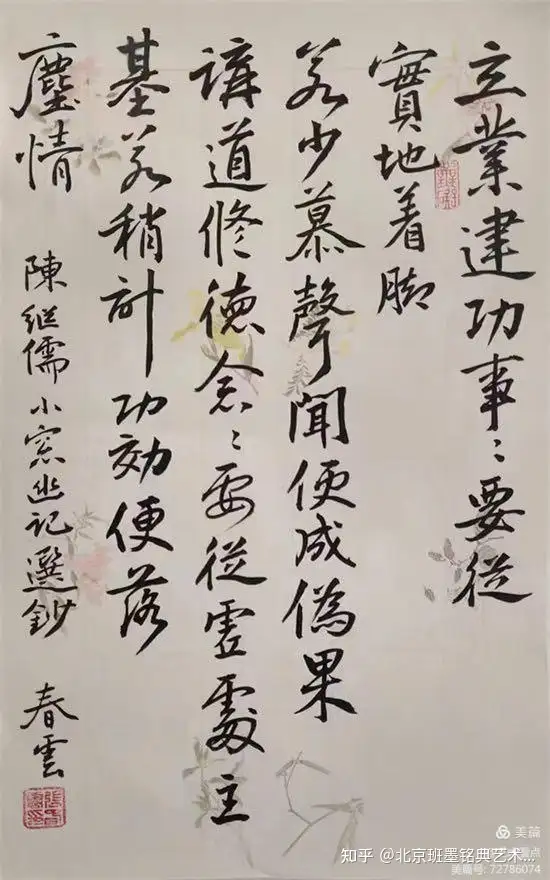 立業建功事〻要從
實地着脚
若少慕聲聞便成偽果
講道修德念〻要從虛處主
基若稍計功効便落
塵情
陳继儒小窓幽记選鈔
春雲
美篇
知乎 @北京班墨铭典艺术...
美篇号: 72786074